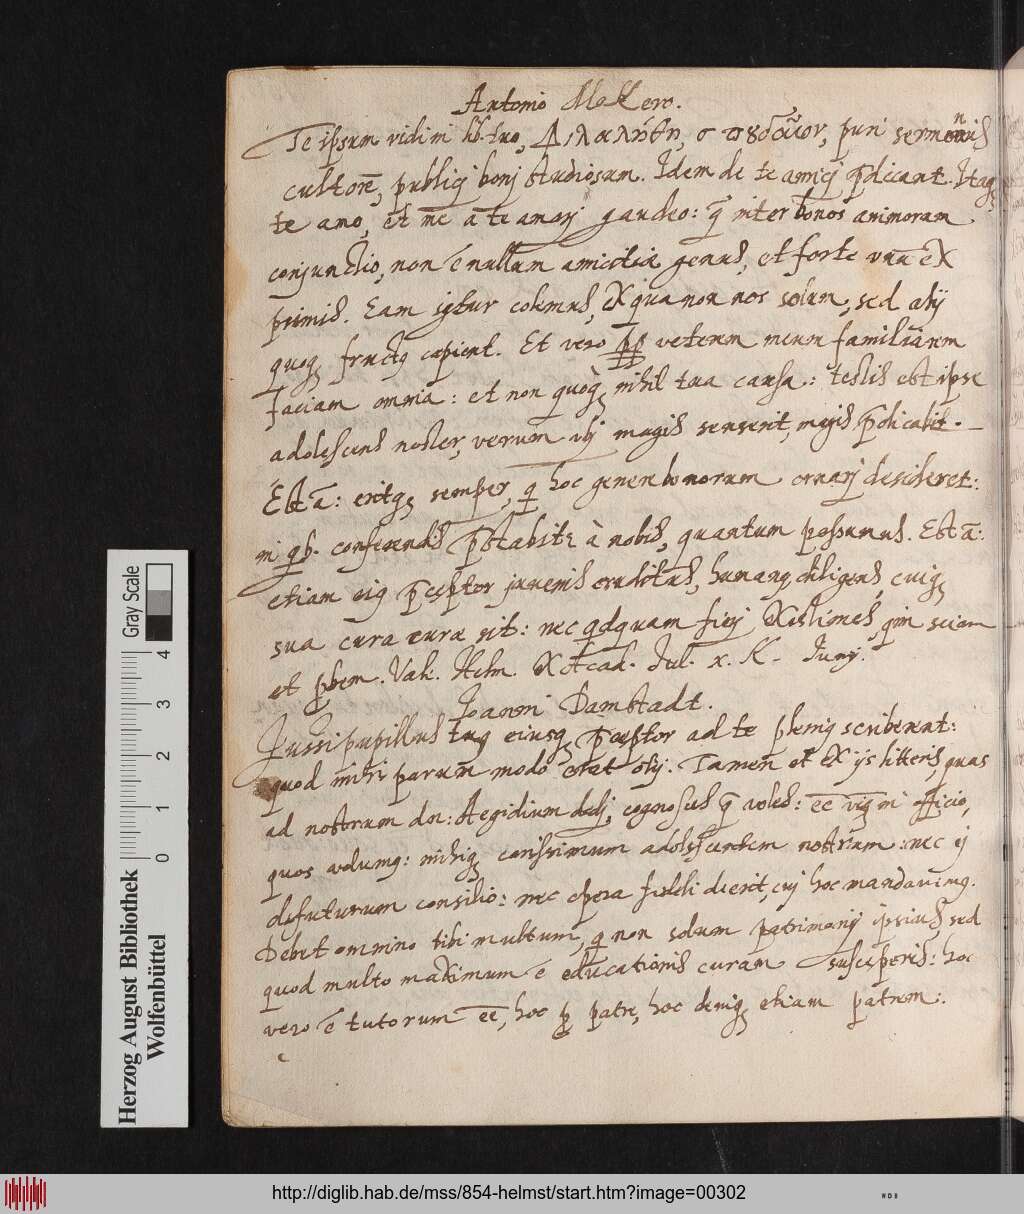 Antonio Mokero.
Te ipsum vidi in lib. tuo, φιλαλήθη, σπουδαῖον, puri sermonis
cultorē, publicij bonj studiosum. Idem de te amicj p̄dicant. Itaq;
te amo, et me a te amarj gaudeo: q̄ inter bonos animorum
conjunctio, non ē nullum amicitiæ genus, et forte unū ex
primis. Eam igtur colemus, ex qua non nos solum, sed alij
quoq; fructq capient. Et vero veterem meum familiarem
faciam omnia: et non quoq; nihil tua causa: testis est ipse
adolescens noster, verum ubj magis senserit, magis p̄dicabit.
Est ā: eritq; semper, q hoc genere bonorum ornarj desideret:
in qb. conferendis p̄stabitr à nobis, quantum possumus. Est ā:
etiam eiq p̄ceptor juvenis eruditus, humanq, diligens, cuiq;
sua cura curæ sit: nec qdquam fierj existimes, qin sciam
et pbem. Vale. Helm. ex Acad. Jul. x. K. Junij.
Joanni Damstadt.
Jussi pupillus tuq eiusq; p̄ceptor ad te pleniq scriberent:
quod mihi parum modo erat otij. Tamen et ex ijs litteris, quas
ad nostrum dn: Aegidium dedj, cognosces q̄ voles: ēē viq in officio,
quos volumq: mihiq; carissimum adolescentem nostrum: nec ej
defuturum consilio: nec opera fideli deerit, cuj hoc mandavimq.
Debet omnino tibi multum, q non solum patrimonij ipsius sed
quod multo maximum ē educationis curam susceperis: hoc
vero ē tutorum ēē, hoc p patre, hoc deniq; etiam patrem:
Herzog August Bibliothek
Wolfenbüttel
Gray Scale
0 1 2 3 4
http://diglib.hab.de/mss/854-helmst/start.htm?image=00302